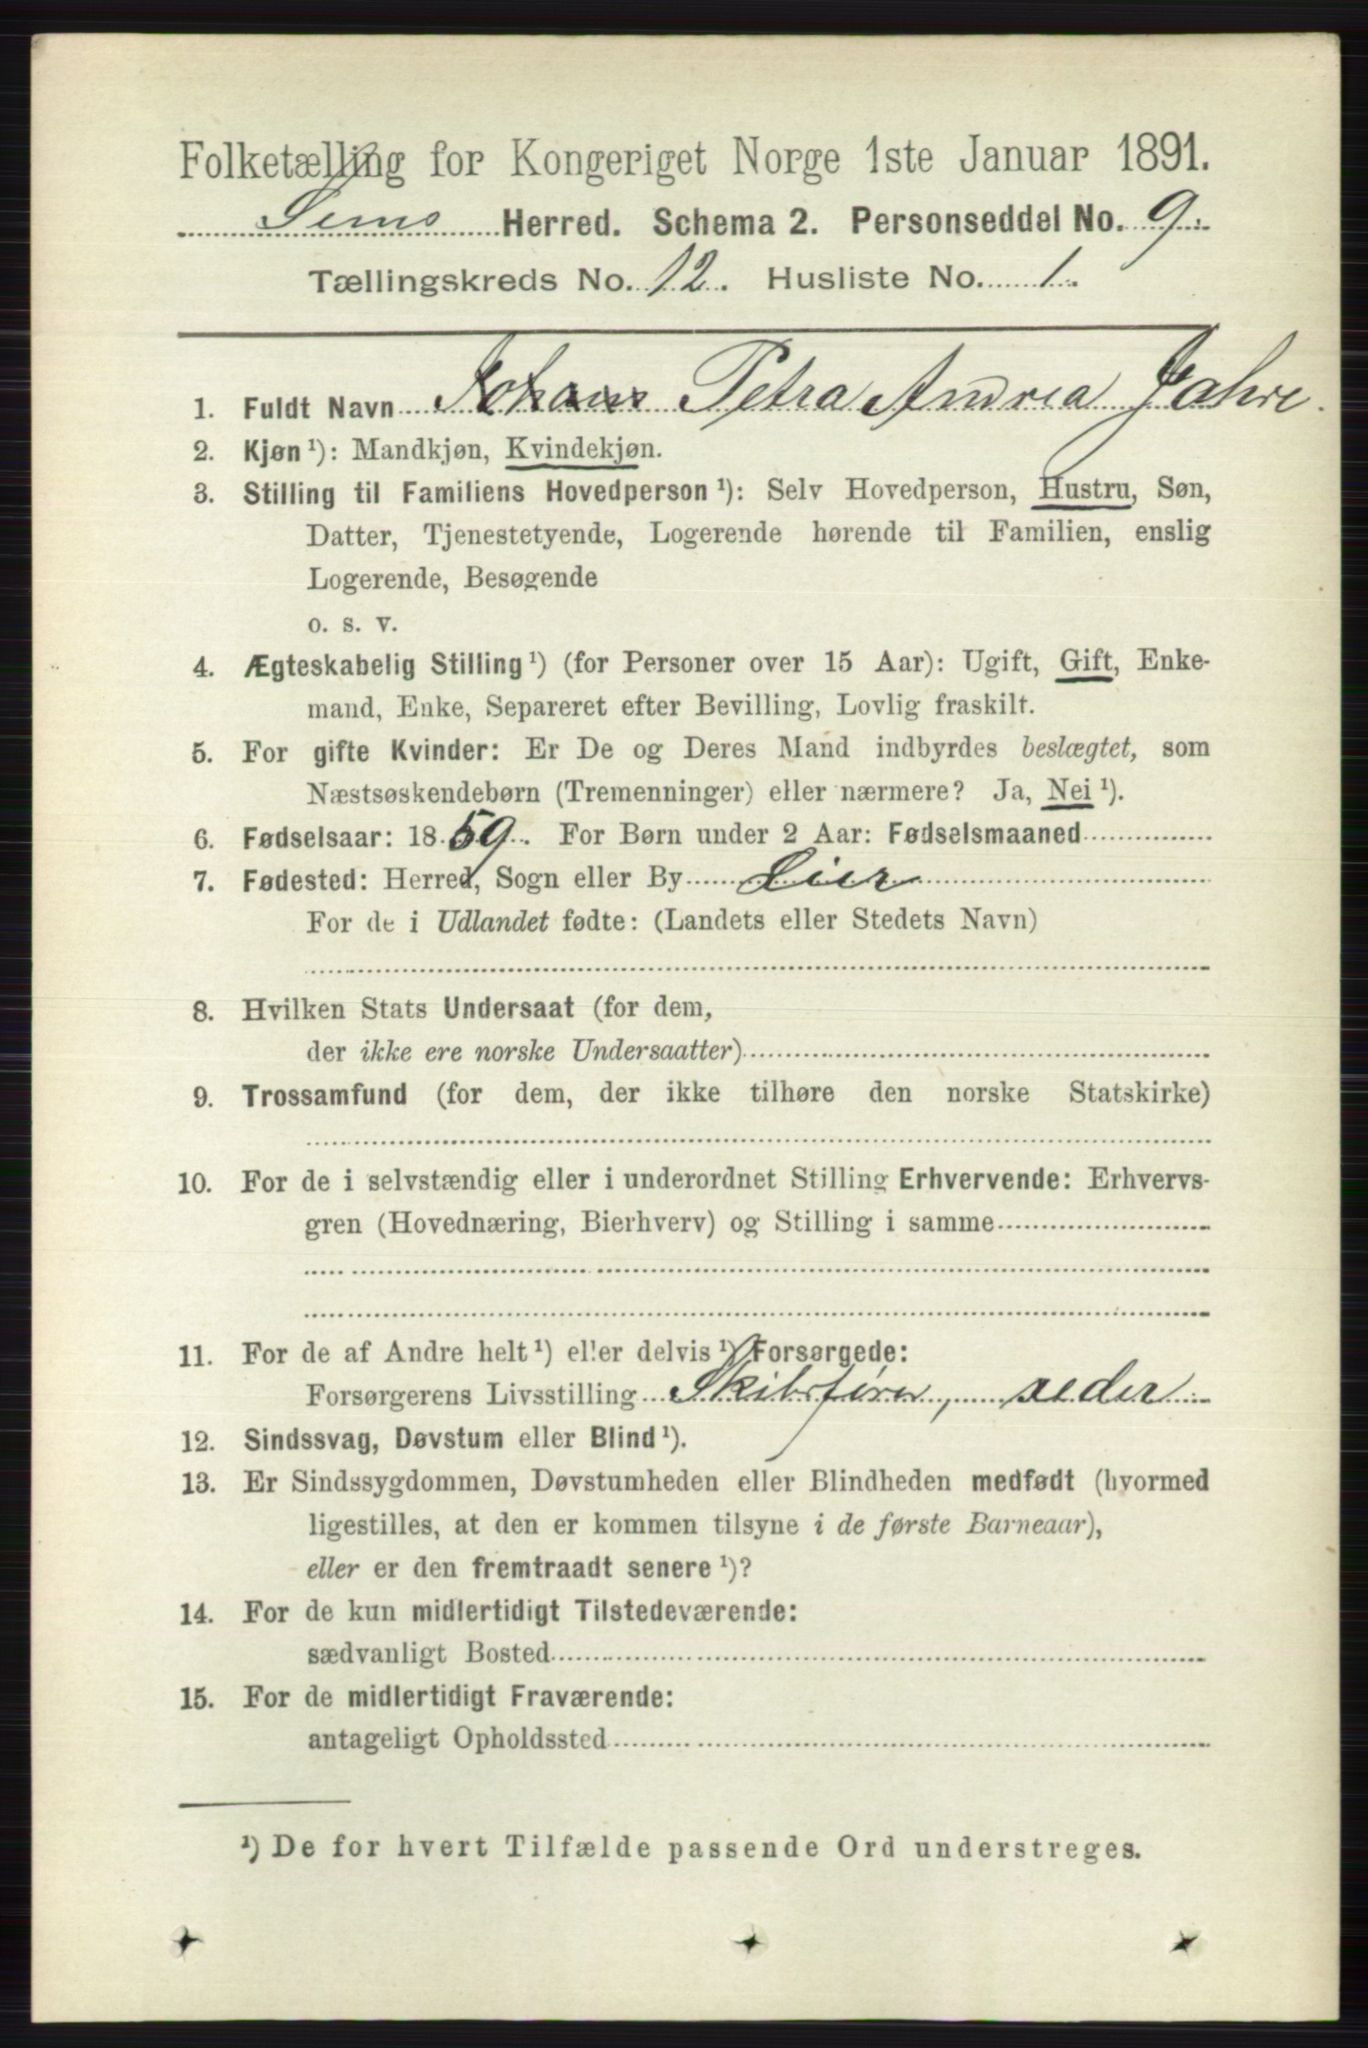 Folketælling for Kongeriget Norge 1ste Januar 1891.
Sems Herred. Schema 2. Personseddel No. 9.
Tællingskreds No. 12. Husliste No. 1.
1. Fuldt Navn Petra Andrea Jahre.
2. Kjøn ¹): Mandkjøn, Kvindekjøn.
3. Stilling til Familiens Hovedperson ¹): Selv Hovedperson, Hustru, Søn,
Datter, Tjenestetyende, Logerende hørende til Familien, enslig
Logerende, Besøgende
o. s. v.
4. Ægteskabelig Stilling ¹) (for Personer over 15 Aar): Ugift, Gift, Enke-
mand, Enke, Separeret efter Bevilling, Lovlig fraskilt.
5. For gifte Kvinder: Er De og Deres Mand indbyrdes beslægtet, som
Næstsøskendebørn (Tremenninger) eller nærmere? Ja, Nei ¹).
6. Fødselsaar: 1859. For Børn under 2 Aar: Fødselsmaaned
7. Fødested: Herred, Sogn eller By Lier
For de i Udlandet fødte: (Landets eller Stedets Navn)
8. Hvilken Stats Undersaat (for dem,
der ikke ere norske Undersaatter)
9. Trossamfund (for dem, der ikke tilhøre den norske Statskirke)
10. For de i selvstændig eller i underordnet Stilling Erhvervende: Erhvervs-
gren (Hovednæring, Bierhverv) og Stilling i samme
11. For de af Andre helt ¹) eller delvis ¹) Forsørgede:
Forsørgerens Livsstilling Skibsfører, reder
12. Sindssvag, Døvstum eller Blind ¹).
13. Er Sindssygdommen, Døvstumheden eller Blindheden medfødt (hvormed
ligestilles, at den er kommen tilsyne i de første Barneaar),
eller er den fremtraadt senere ¹)?
14. For de kun midlertidigt Tilstedeværende:
sædvanligt Bosted
15. For de midlertidigt Fraværende:
antageligt Opholdssted
¹) De for hvert Tilfælde passende Ord understreges.